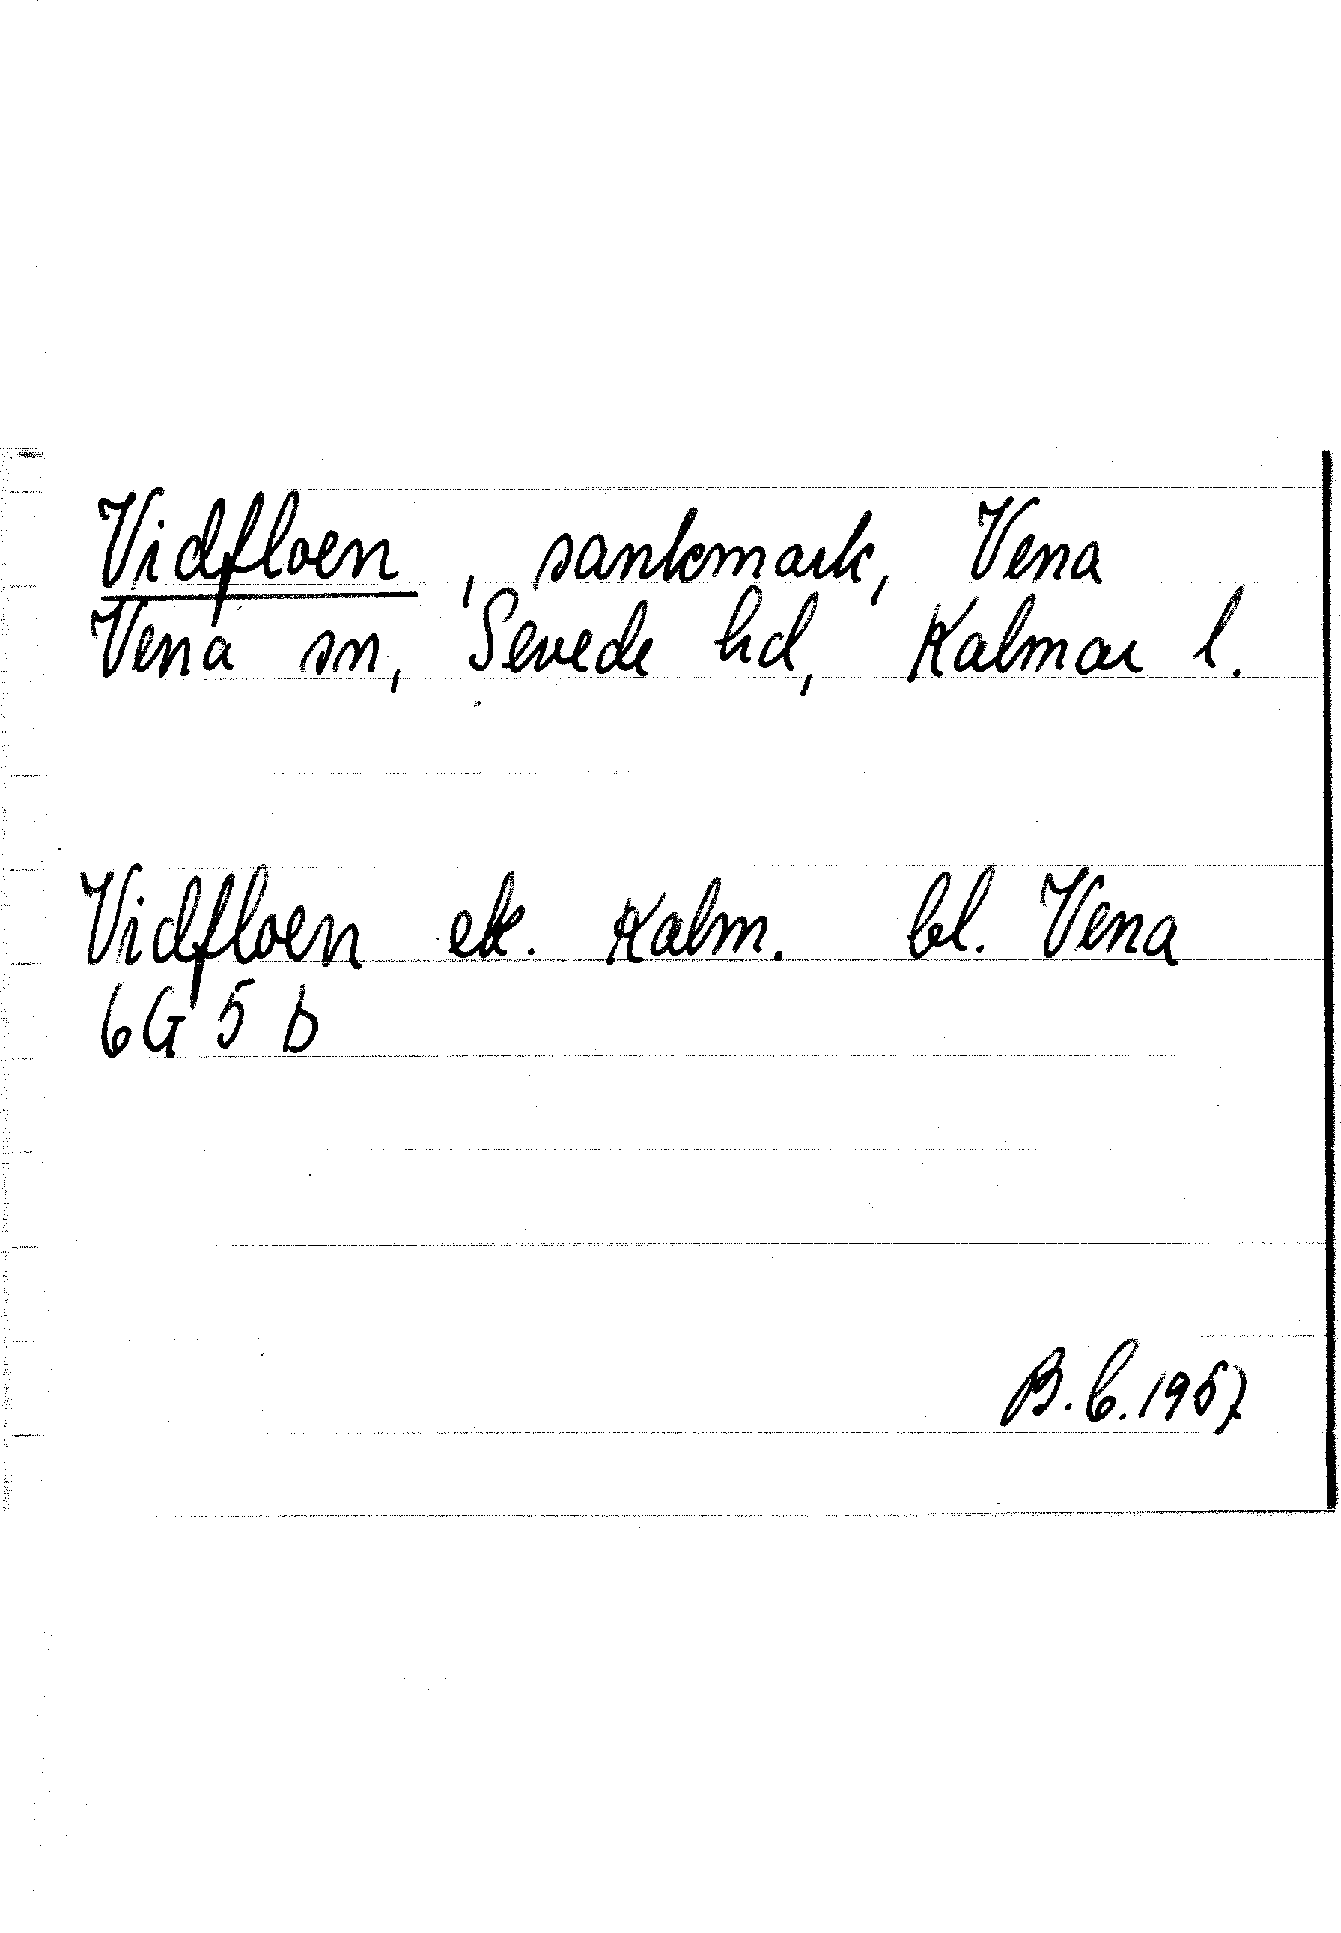 Vidfloen, sankmark, Vena
Vena sn, Sevede hd, Kalmar l.
Vidfloen ek. Kalm. bl. Vena
6G 5 b
B.C. 1957